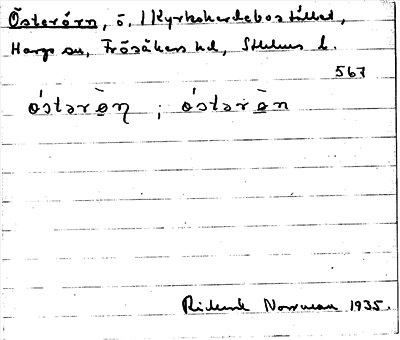 Österörn, ö, i Kyrkoherdebostället,
Hargs sn, Frösåkers hd, Sthlms l.
567
östərø̀ɳ ; östərø̀n
Rickard Norrman 1935.